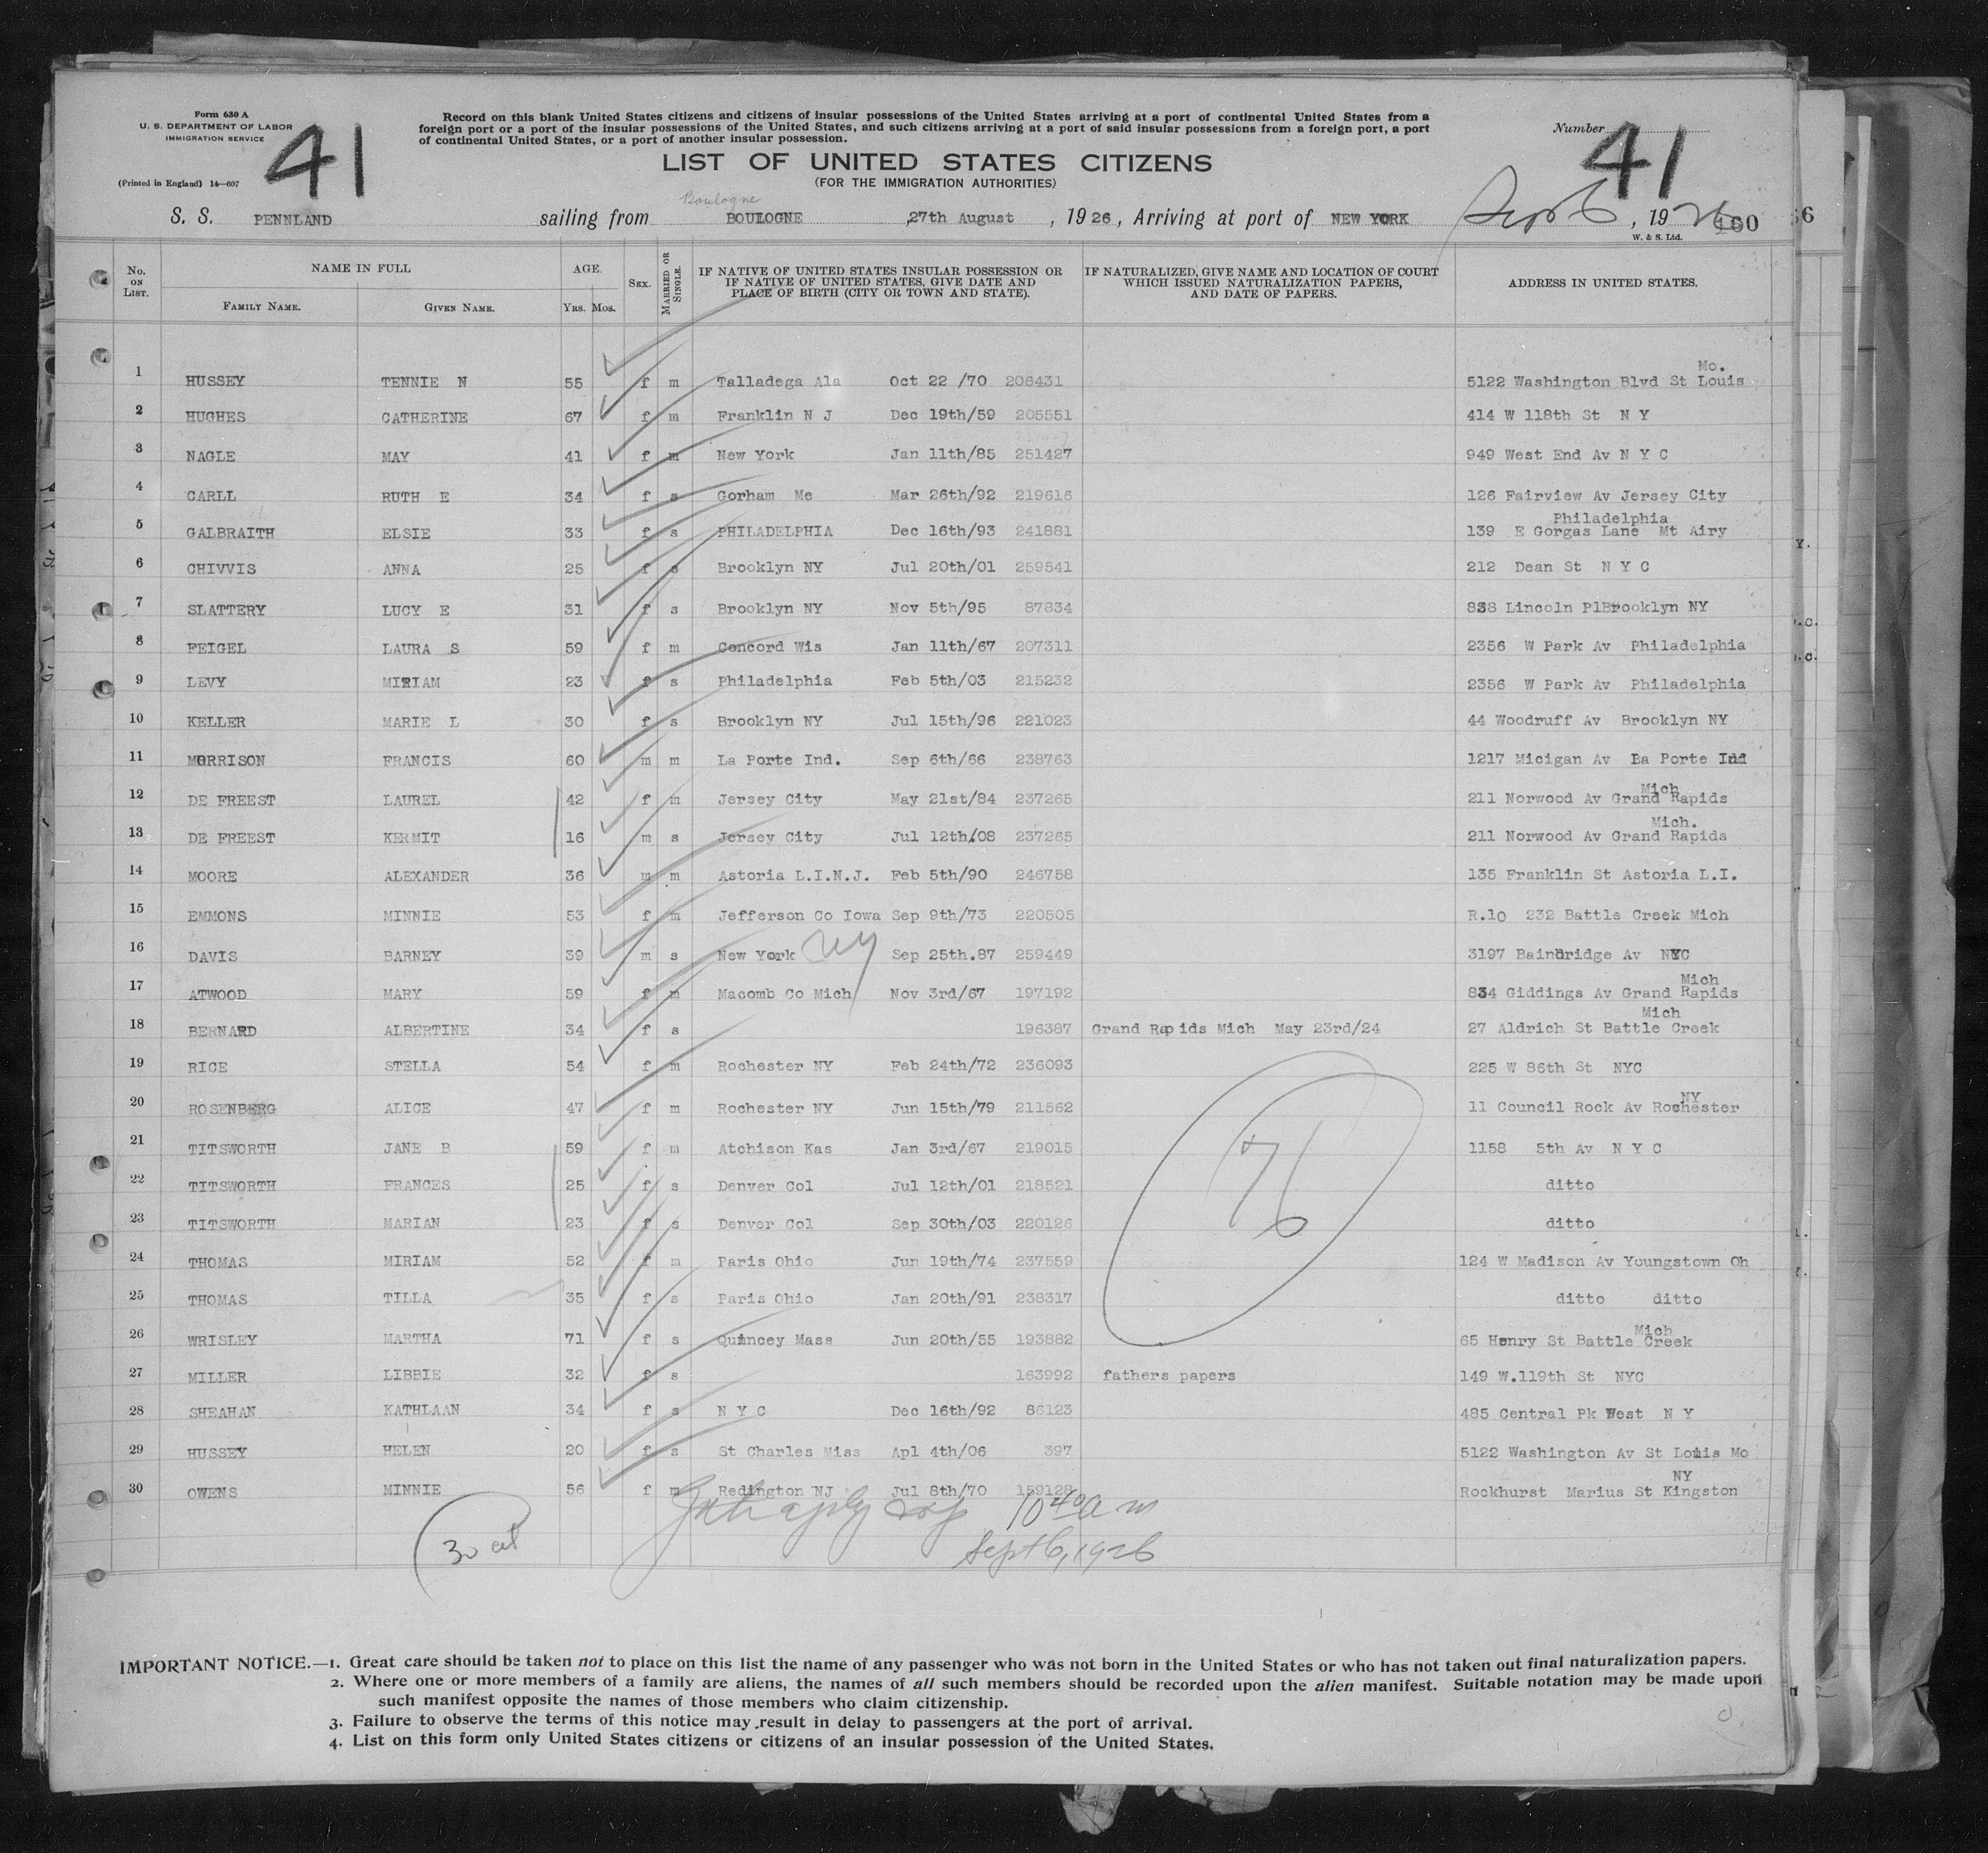 Form 630 A
U. S. DEPARTMENT OF LABOR
IMMIGRATION SERVICE
(Printed in England) 14—607
41
Record on this blank United States citizens and citizens of insular possessions of the United States arriving at a port of continental United States from a
foreign port or a port of the insular possessions of the United States, and such citizens arriving at a port of said insular possessions from a foreign port, a port
of continental United States, or a port of another insular possession.
Number
41
LIST OF UNITED STATES CITIZENS
(FOR THE IMMIGRATION AUTHORITIES)
Boulogne
S. S. PENNLAND sailing from BOULOGNE 27th August, 1926, Arriving at port of NEW YORK Sept 6, 1926
W. & S. Ltd.
No. ON LIST. NAME IN FULL AGE. SEX. MARRIED OR SINGLE. IF NATIVE OF UNITED STATES INSULAR POSSESSION OR IF NATIVE OF UNITED STATES, GIVE DATE AND PLACE OF BIRTH (CITY OR TOWN AND STATE). IF NATURALIZED, GIVE NAME AND LOCATION OF COURT WHICH ISSUED NATURALIZATION PAPERS, AND DATE OF PAPERS. ADDRESS IN UNITED STATES.
FAMILY NAME. GIVEN NAME. YRS. MOS.
1 HUSSEY TENNIE N 55 f m Talladega Ala Oct 22 /70 206431 5122 Washington Blvd St Louis Mo.
2 HUGHES CATHERINE 67 f m Franklin N J Dec 19th/59 205551 414 W 118th St N Y
3 NAGLE MAY 41 f m New York Jan 11th/85 251427 949 West End Av N Y C
4 CARLL RUTH E 34 f s Gorham Me Mar 26th/92 219616 126 Fairview Av Jersey City
5 GALBRAITH ELSIE 33 f s PHILADELPHIA Dec 16th/93 241881 139 E Gorgas Lane Mt Airy Philadelphia
6 CHIVVIS ANNA 25 f s Brooklyn NY Jul 20th/01 259541 212 Dean St N Y C
7 SLATTERY LUCY E 31 f s Brooklyn NY Nov 5th/95 87834 838 Lincoln PlBrooklyn NY
8 FEIGEL LAURA S 59 f m Concord Wis Jan 11th/67 207311 2356 W Park Av Philadelphia
9 LEVY MIRIAM 23 f s Philadelphia Feb 5th/03 215232 2356 W Park Av Philadelphia
10 KELLER MARIE L 30 f s Brooklyn NY Jul 15th/96 221023 44 Woodruff Av Brooklyn NY
11 MORRISON FRANCIS 60 m m La Porte Ind. Sep 6th/66 238763 1217 Micigan Av Ba Porte Ind
12 DE FREEST LAUREL 42 f m Jersey City May 21st/84 237265 211 Norwood Av Grand Rapids Mich
13 DE FREEST KERMIT 16 m s Jersey City Jul 12th/08 237265 211 Norwood Av Grand Rapids Mich.
14 MOORE ALEXANDER 36 m m Astoria L.I.N.J. Feb 5th/90 246758 135 Franklin St Astoria L.I.
15 EMMONS MINNIE 53 f m Jefferson Co Iowa Sep 9th/73 220505 R.10 232 Battle Creek Mich
16 DAVIS BARNEY 39 m s New York NY Sep 25th.87 259449 3197 Bainbridge Av NYC
17 ATWOOD MARY 59 f m Macomb Co Mich Nov 3rd/67 197192 834 Giddings Av Grand Rapids Mich
18 BERNARD ALBERTINE 34 f s 196387 Grand Rapids Mich May 23rd/24 27 Aldrich St Battle Creek Mich
19 RICE STELLA 54 f m Rochester NY Feb 24th/72 236093 225 W 86th St NYC
20 ROSENBERG ALICE 47 f m Rochester NY Jun 15th/79 211562 11 Council Rock Av Rochester NY
21 TITSWORTH JANE B 59 f m Atchison Kas Jan 3rd/67 219015 1158 5th Av N Y C
22 TITSWORTH FRANCES 25 f s Denver Col Jul 12th/01 218521 ditto
23 TITSWORTH MARIAN 23 f s Denver Col Sep 30th/03 220126 ditto
24 THOMAS MIRIAM 52 f m Paris Ohio Jun 19th/74 237559 124 W Madison Av Youngstown Oh
25 THOMAS TILLA 35 f s Paris Ohio Jan 20th/91 238317 ditto ditto
26 WRISLEY MARTHA 71 f s Quincey Mass Jun 20th/55 193882 65 Henry St Battle Creek Mich
27 MILLER LIBBIE 32 f s 163992 fathers papers 149 W.119th St NYC
28 SHEAHAN KATHLAAN 34 f s N Y C Dec 16th/92 86123 485 Central Pk West N Y
29 HUSSEY HELEN 20 f s St Charles Miss Apl 4th/06 397 5122 Washington Av St Louis Mo
30 OWENS MINNIE 56 f m Redington NJ Jul 8th/70 159128 Rockhurst Marius St Kingston NY
76
10 40 a m
Sept 6, 1926
IMPORTANT NOTICE.—1. Great care should be taken not to place on this list the name of any passenger who was not born in the United States or who has not taken out final naturalization papers.
2. Where one or more members of a family are aliens, the names of all such members should be recorded upon the alien manifest. Suitable notation may be made upon
such manifest opposite the names of those members who claim citizenship.
3. Failure to observe the terms of this notice may result in delay to passengers at the port of arrival.
4. List on this form only United States citizens or citizens of an insular possession of the United States.